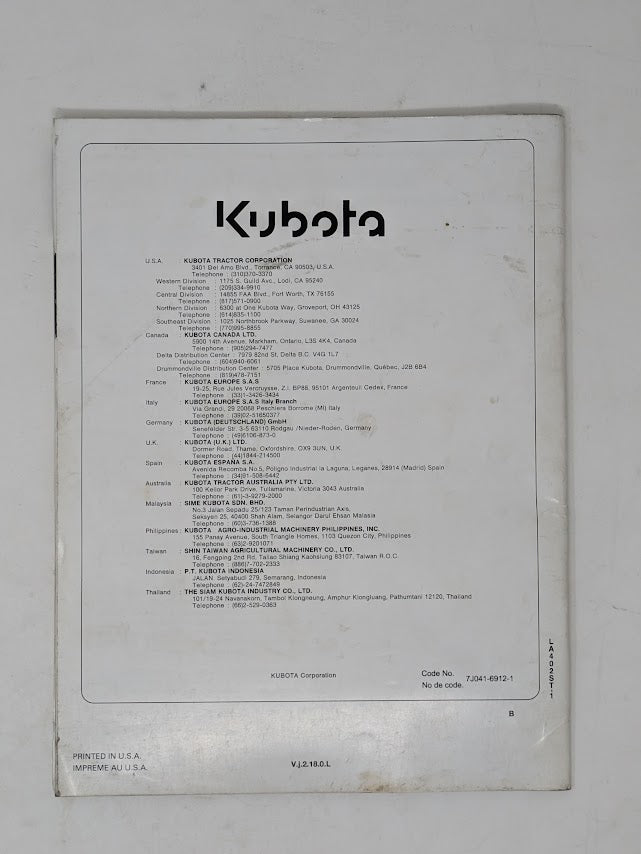 Kubota
U.S.A. : KUBOTA TRACTOR CORPORATION
3401 Del Amo Blvd., Torrance, CA 90503, U.S.A.
Telephone : (310)370-3370
Western Division : 1175 S. Guild Ave., Lodi, CA 95240
Telephone : (209)334-9910
Central Division : 14855 FAA Blvd., Fort Worth, TX 76155
Telephone : (817)571-0900
Northern Division : 6300 at One Kubota Way, Groveport, OH 43125
Telephone : (614)835-1100
Southeast Division : 1025 Northbrook Parkway, Suwanee, GA 30024
Telephone : (770)995-8855
Canada : KUBOTA CANADA LTD.
5900 14th Avenue, Markham, Ontario, L3S 4K4, Canada
Telephone : (905)294-7477
Delta Distribution Center : 7979 82nd St, Delta B.C. V4G 1L7
Telephone : (604)940-6061
Drummondville Distribution Center : 5705 Place Kubota, Drummondville, Québec, J2B 6B4
Telephone : (819)478-7151
France : KUBOTA EUROPE S.A.S
19-25, Rue Jules Vercruysse, Z.I. BP88, 95101 Argenteuil Cedex, France
Telephone : (33)1-3426-3434
Italy : KUBOTA EUROPE S.A.S Italy Branch
Via Grandi, 29 20068 Peschiera Borrome (MI) Italy
Telephone : (39)02-51650377
Germany : KUBOTA (DEUTSCHLAND) GmbH
Senefelder Str. 3-5 63110 Rodgau /Nieder-Roden, Germany
Telephone : (49)6106-873-0
U.K. : KUBOTA (U.K.) LTD.
Dormer Road, Thame, Oxfordshire, OX9 3UN, U.K.
Telephone : (44)1844-214500
Spain : KUBOTA ESPAÑA S.A.
Avenida Recomba No.5, Poligno Industrial la Laguna, Leganes, 28914 (Madrid) Spain
Telephone : (34)91-508-6442
Australia : KUBOTA TRACTOR AUSTRALIA PTY LTD.
100 Keilor Park Drive, Tullamarine, Victoria 3043 Australia
Telephone : (61)-3-9279-2000
Malaysia : SIME KUBOTA SDN. BHD.
No.3 Jalan Sepadu 25/123 Taman Perindustrian Axis,
Seksyen 25, 40400 Shah Alam, Selangor Darul Ehsan Malasia
Telephone : (60)3-736-1388
Philippines : KUBOTA AGRO-INDUSTRIAL MACHINERY PHILIPPINES, INC.
155 Panay Avenue, South Triangle Homes, 1103 Quezon City, Philippines
Telephone : (63)2-9201071
Taiwan : SHIN TAIWAN AGRICULTURAL MACHINERY CO., LTD.
16, Fengping 2nd Rd, Taliao Shiang Kaohsiung 83107, Taiwan R.O.C.
Telephone : (886)7-702-2333
Indonesia : P.T. KUBOTA INDONESIA
JALAN. Setyabudi 279, Semarang, Indonesia
Telephone : (62)-24-7472849
Thailand : THE SIAM KUBOTA INDUSTRY CO., LTD.
101/19-24 Navanakorn, Tambol Klongneung, Amphur Klongluang, Pathumtani 12120, Thailand
Telephone : (66)2-529-0363
KUBOTA Corporation
Code No.
No de code. 7J041-6912-1
LA402ST·1
B
PRINTED IN U.S.A.
IMPREME AU U.S.A.
V.j.2.18.0.L